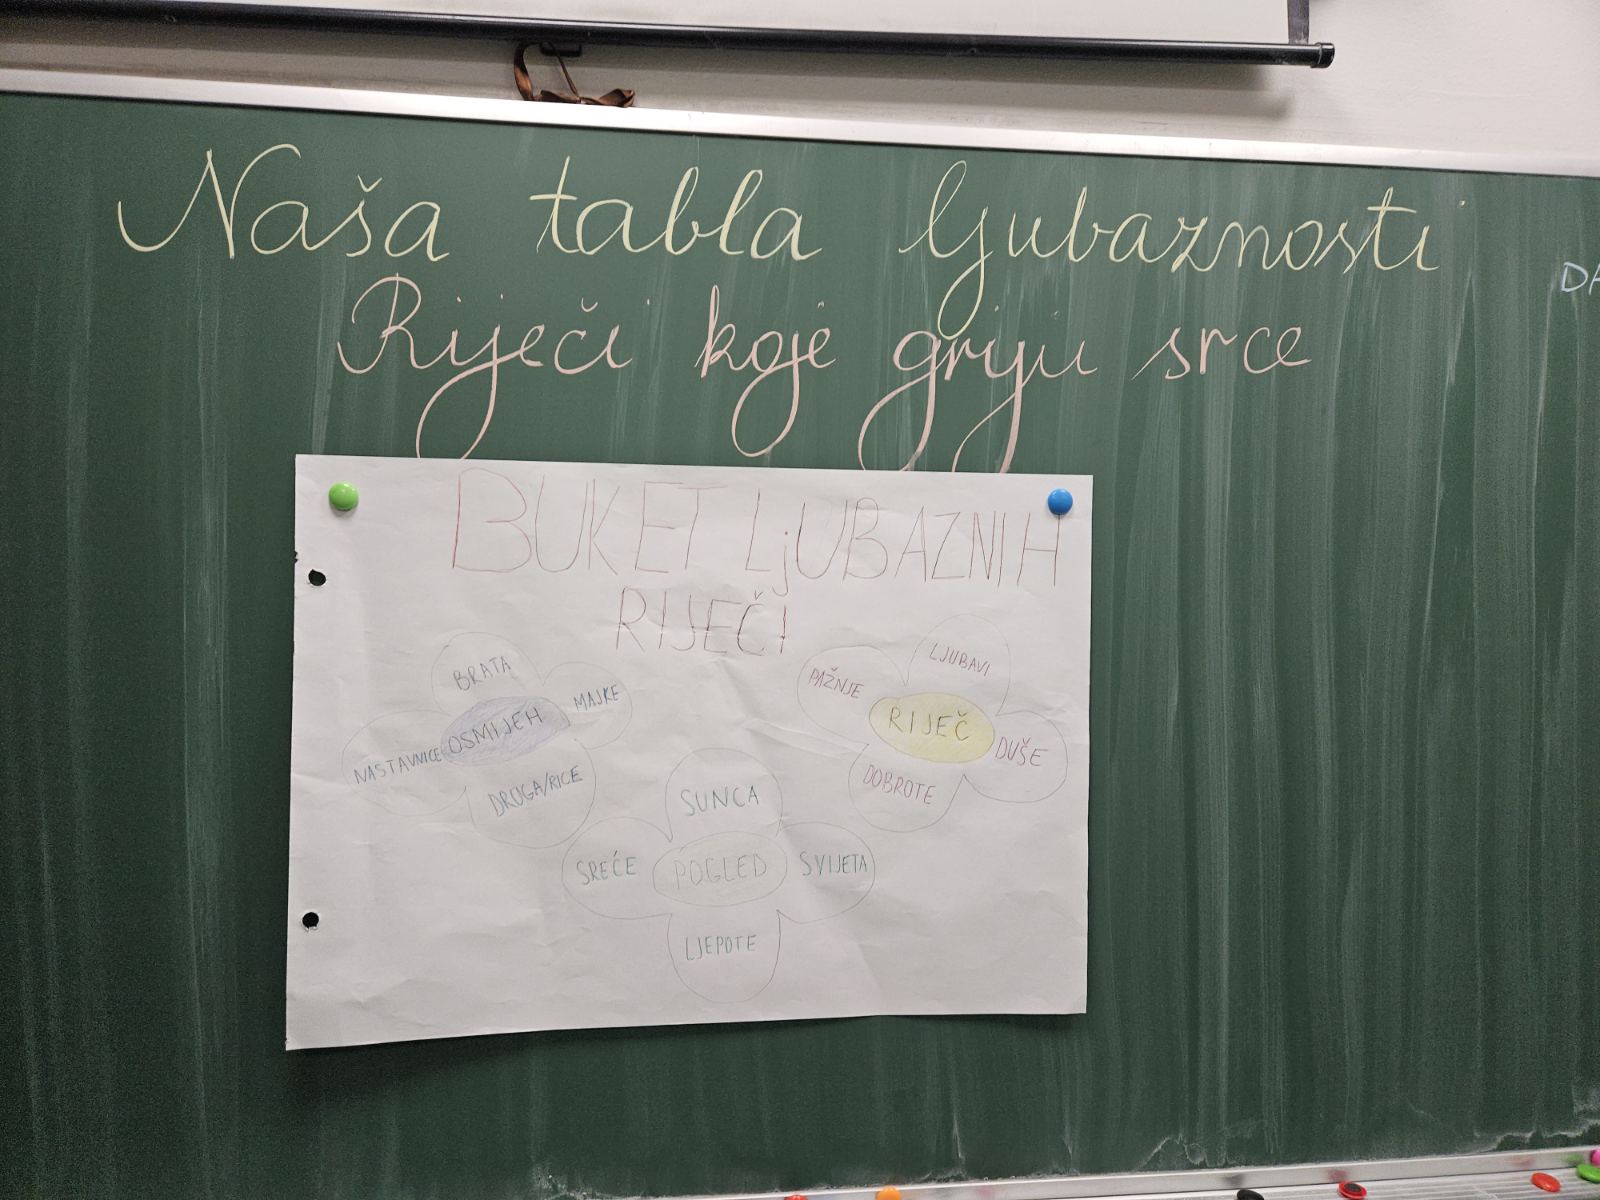 Naša tabla ljubaznosti
Riječi koje griju srce
DA
BUKET LjUBAZNIH
RIJEČI
BRATA
MAJKE
OSMIJEH
NASTAVNICE
DRUGA/RICE
LJUBAVI
PAŽNJE
RIJEČ
DUŠE
DOBROTE
SUNCA
SREĆE
POGLED
SVIJETA
LJEPOTE